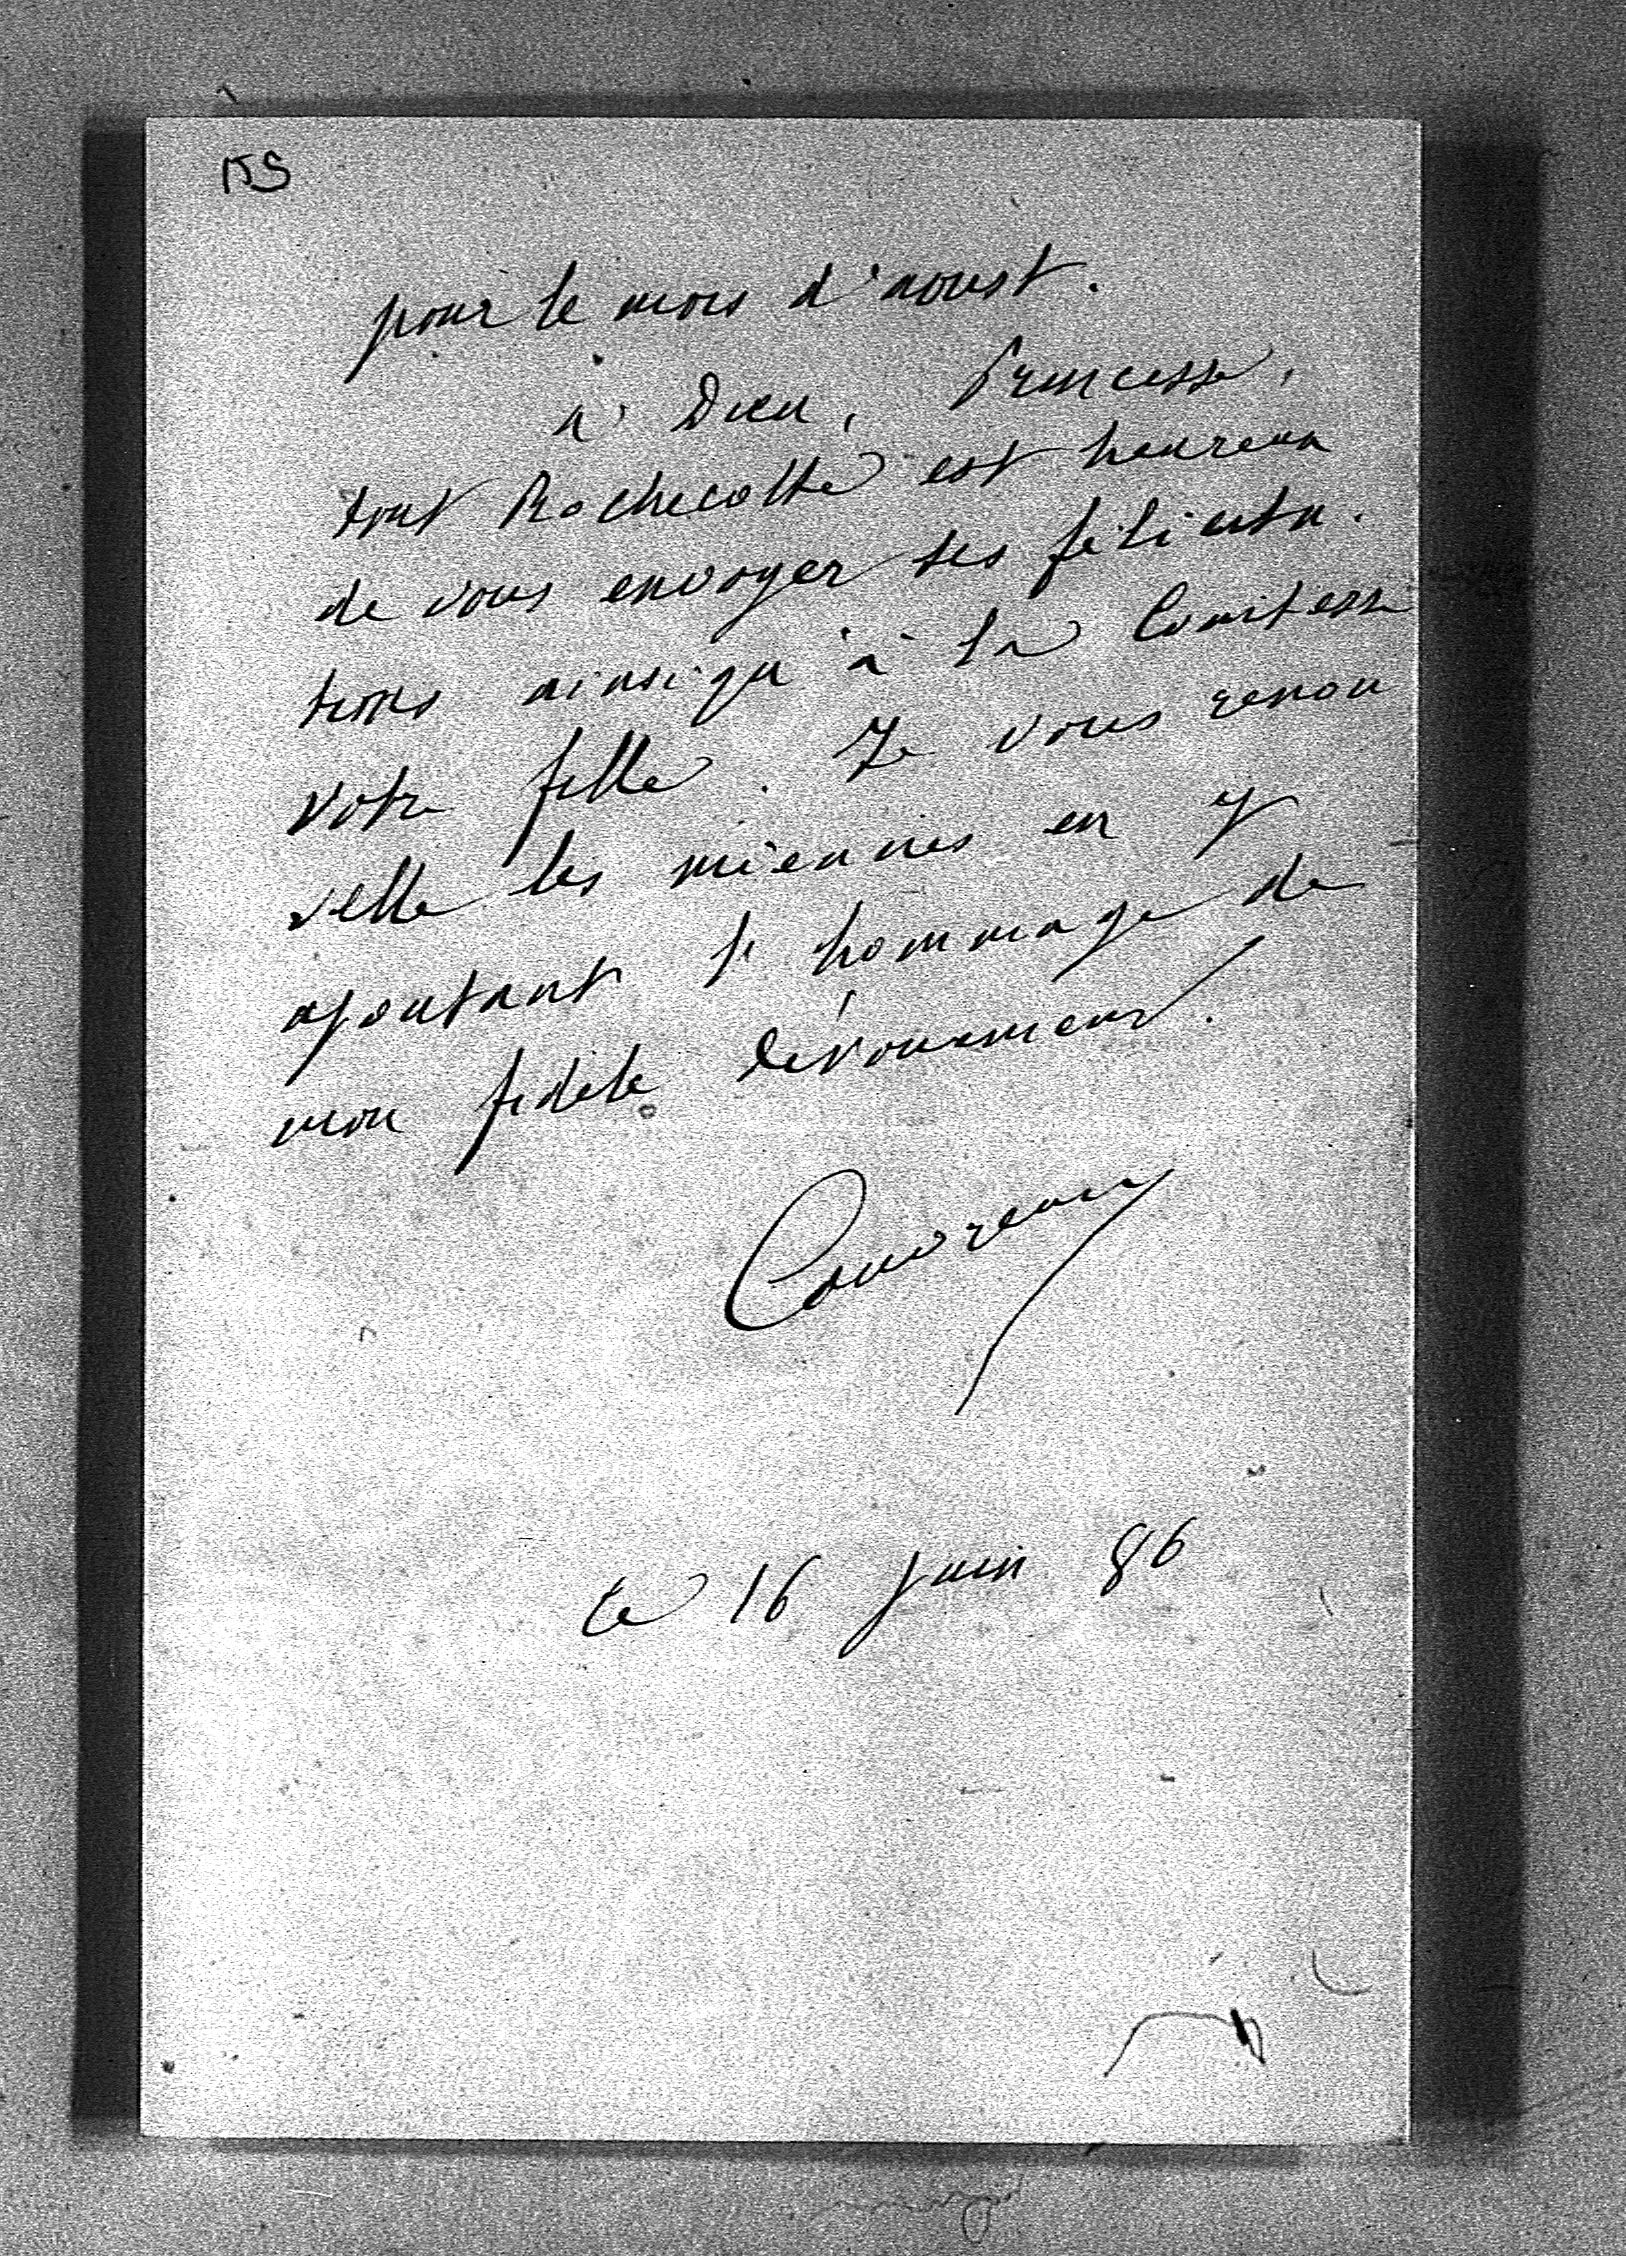 pour le mois d'aoust.
à Dieu, Princesse,
tout Rochecotte est heureux
de vous envoyer ses félicita.
tions ainsi qu'à la Comtesse
votre fille. Je vous renou
velle les miennes en y
ajoutant l'hommage de
mon fidèle dévouement.
Couvreux
le 16 juin 86